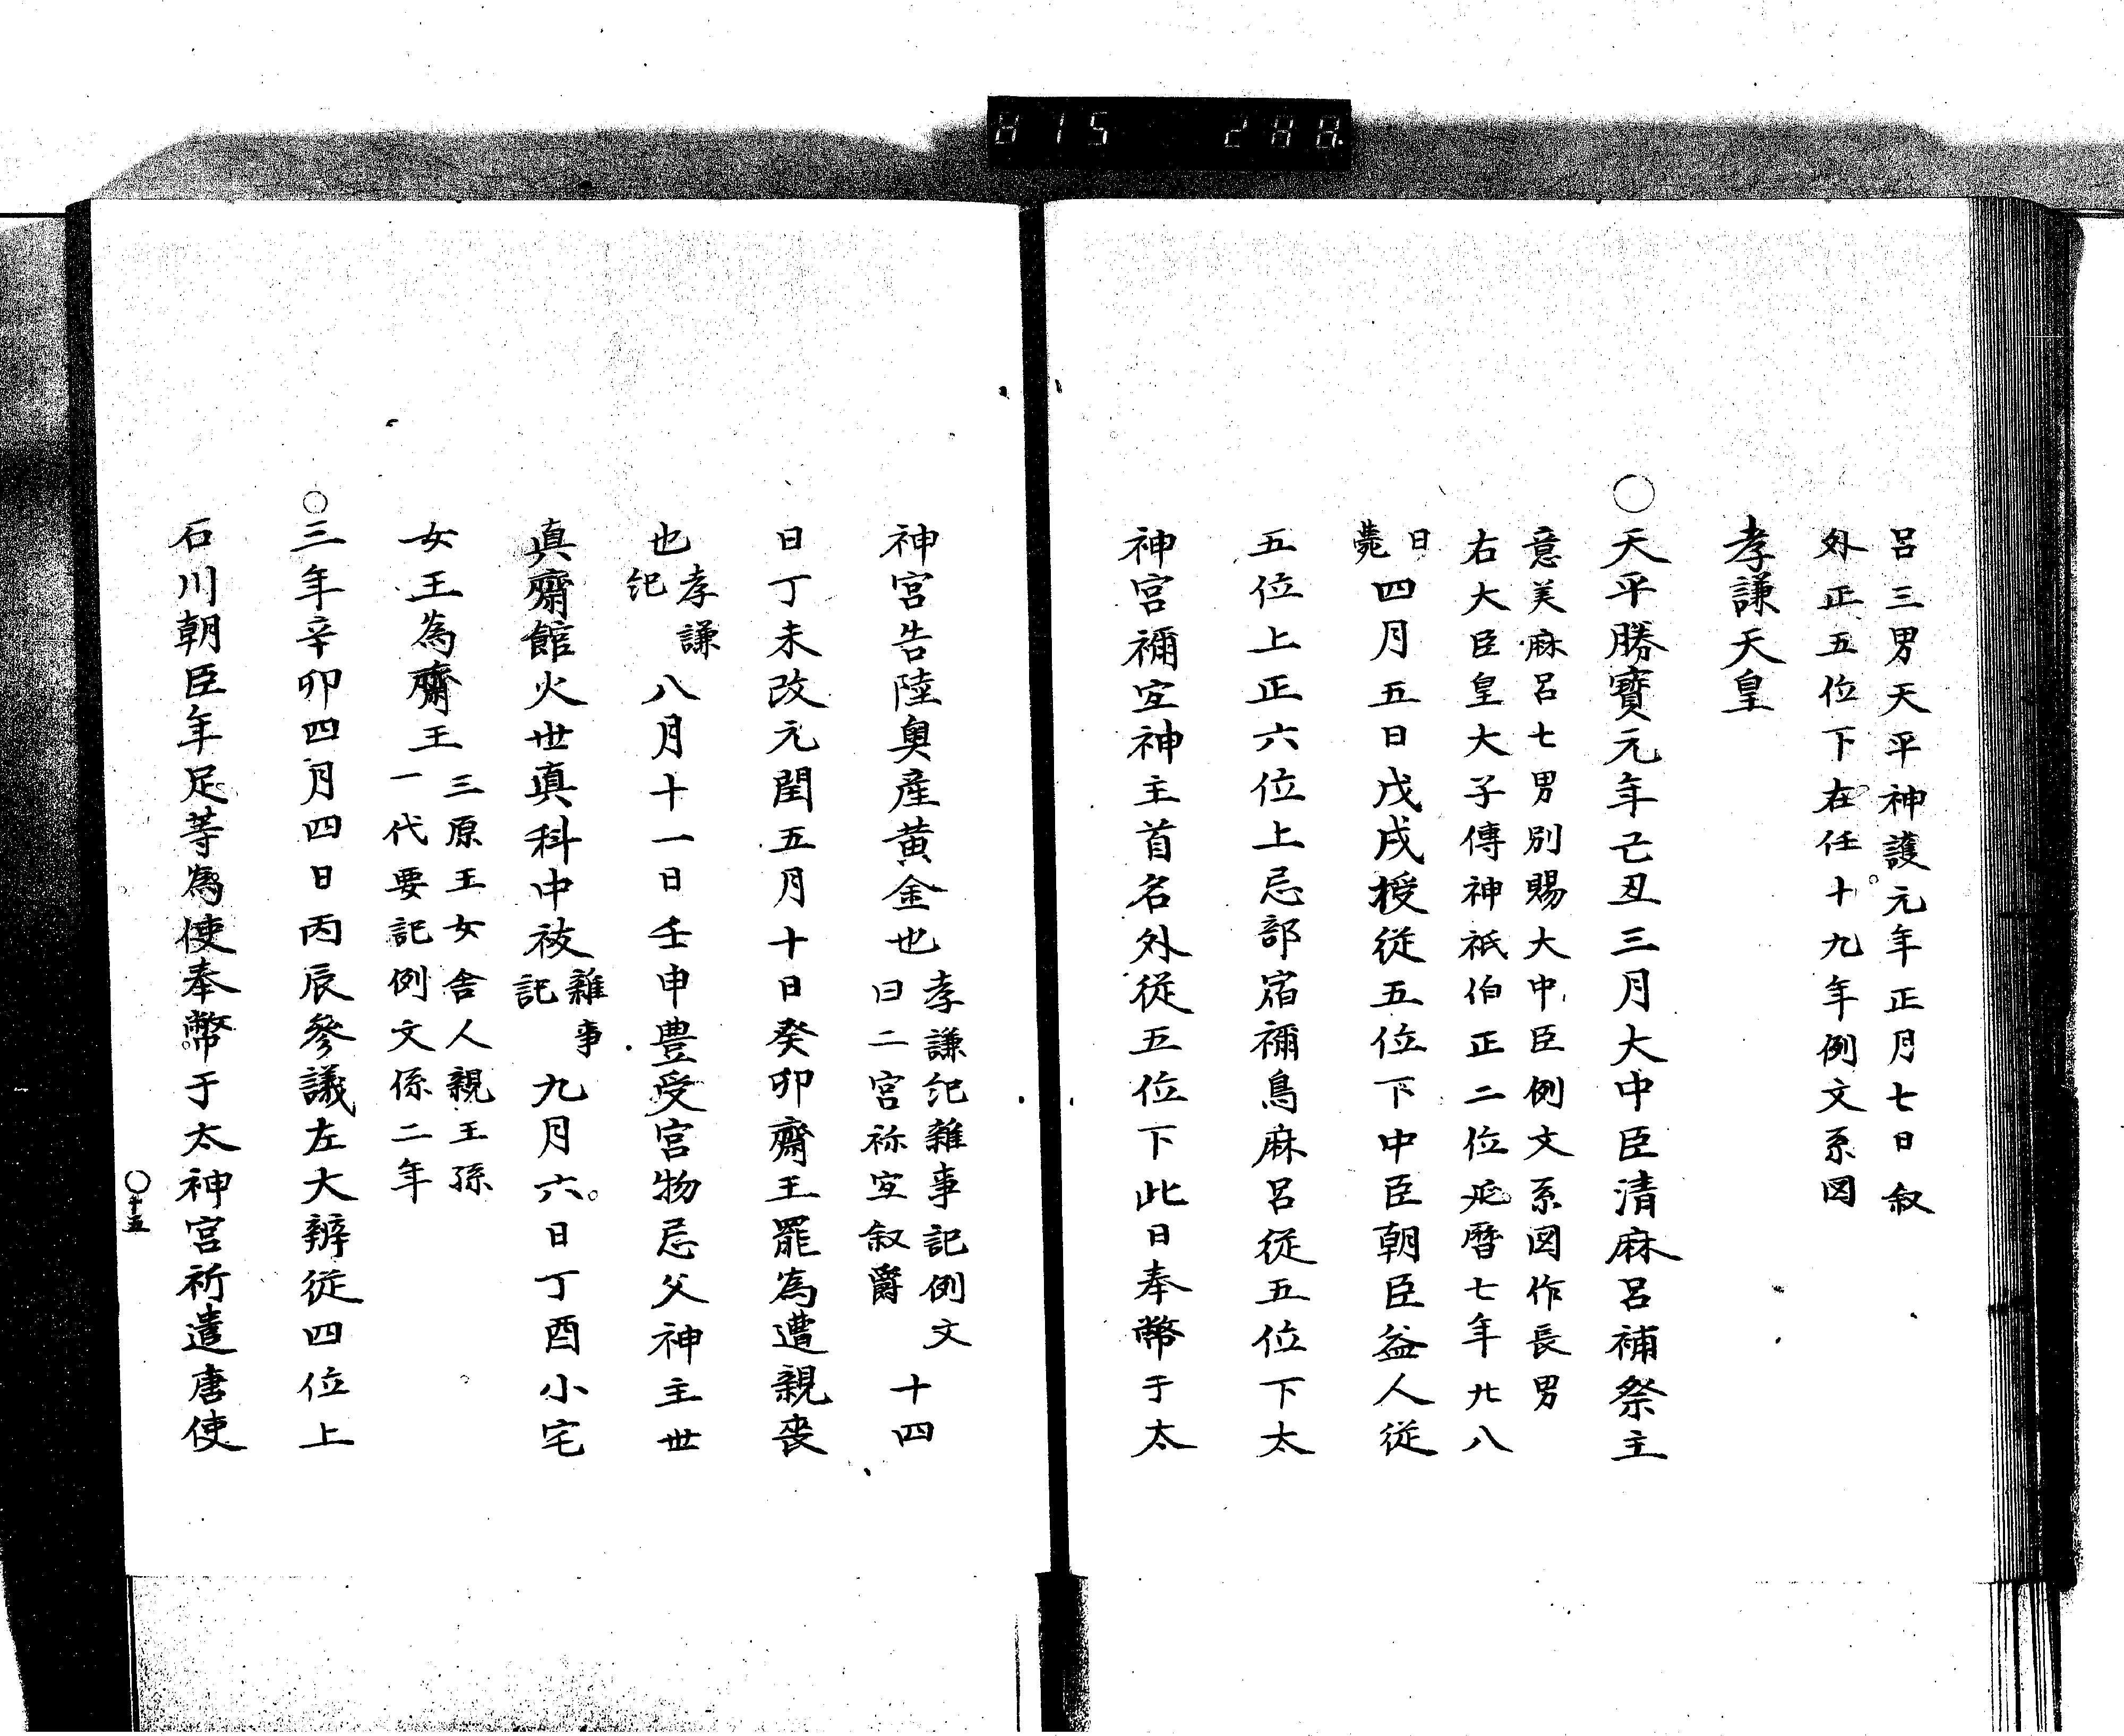 呂三男天平神護元年正月七日叙
外正五位下在任十九年例文系図
孝謙天皇
○天平勝寶元年己丑三月大中臣清麻呂補祭主
意美麻呂七男別賜大中臣例文系図作長男
右大臣皇大子傳神祇伯正二位延暦七年廿八
日
薨四月五日戊戌授從五位下中臣朝臣益人從
五位上正六位上忌部宿禰鳥麻呂從五位下太
神宮禰宜神主首名外從五位下此日奉幣于太
神宮告陸奥産黄金也
孝謙紀雜事記例文
曰二宮祢宜叙爵
十四
日丁未改元閏五月十日癸卯齋王罷為遭親喪
也
孝謙
紀
八月十一日壬申豊受宮物忌父神主世
真齋館火世真科中祓
雜事
記
九月六日丁酉小宅
女王為齋王
三原王女舎人親王孫
一代要記例文係二年
○三年辛卯四月四日丙辰參議左大辨從四位上
石川朝臣年足等為使奉幣于太神宮祈遣唐使
○十五